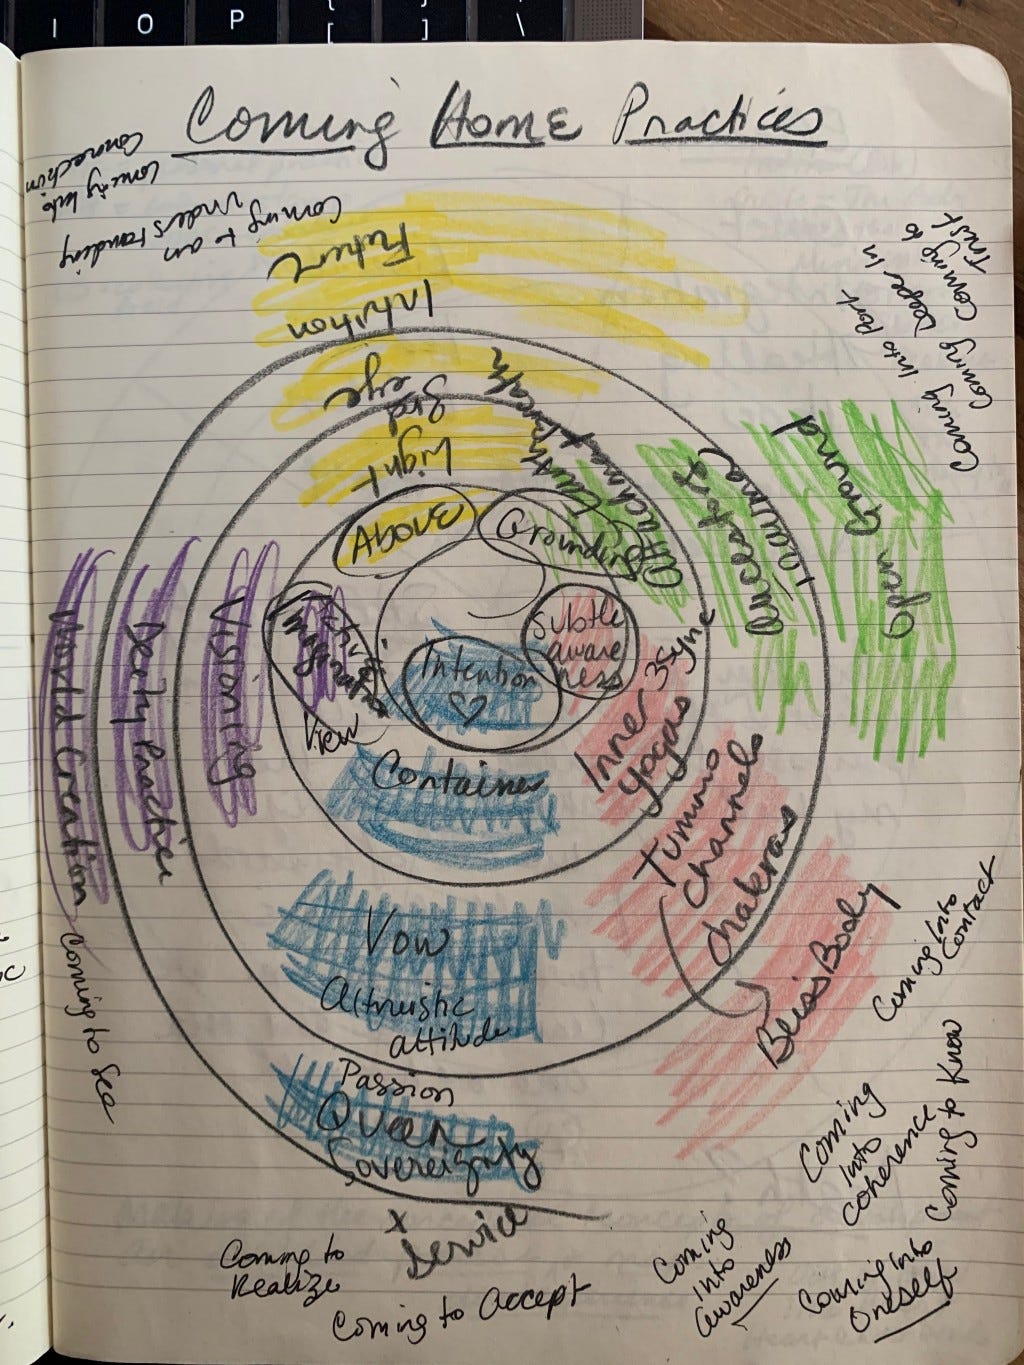 I O P [ ] \
Coming Home Practices
Coming Into
Connection
Coming to an
Understanding
Future
Intuition
3rd
eye
Light
Above
Coming Into Port
Coming Deeper In
Coming to
Trust
Open Ground
Trauma
Ancestors
Attachment
Earth breath
Grounding
Subtle
aware
ness
Inner 3 syn
Yogas
Tummo
Channels
Chakras
Bliss Body
Intention
Container
Vow
Altruistic
attitude
Passion
Queen
Sovereignty
x
Service
View
Visioning
Deity Practice
World Creation
Coming to See
Coming to
Realize
Coming to Accept
Coming
into
awareness
Coming Into
Oneself
Coming
into
coherence
Coming to Know
Coming Into
Contact